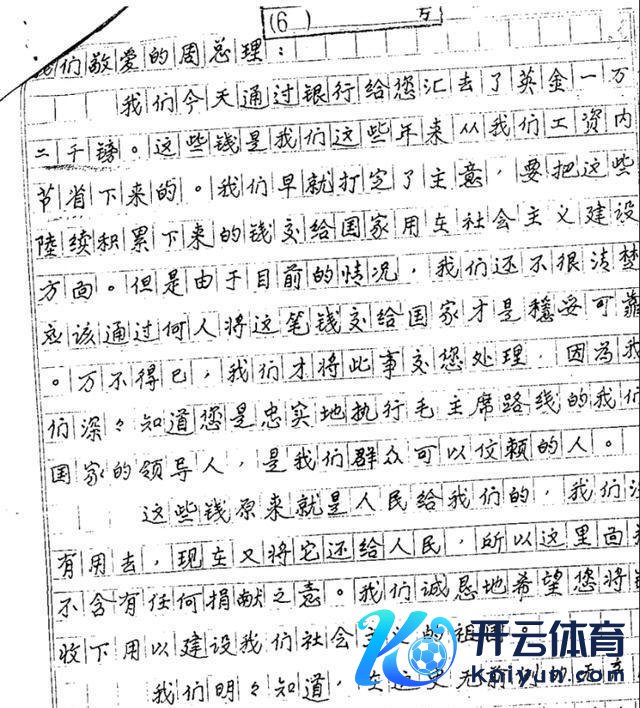 (6) 万
们敬爱的周总理：
我们今天通过银行给您汇去了英金一万
二千镑。这些钱是我们这些年来从我们工资内
节省下来的。我们早就打定了主意，要把这些
陸续积累下来的钱交给国家用在社会主义建设
方面。但是由于目前的情况，我们还不很清楚
应该通过何人将这笔钱交给国家才是穩妥可靠
。万不得已，我们才将此事交您处理，因為我
们深々知道您是忠实地执行毛主席路线的我们
国家的领导人，是我们群众可以信赖的人。
这些钱原来就是人民给我们的，我们没
有用去，现在又将它还给人民，所以这里面
不含有任何捐献之意。我们诚恳地希望您将
收下用以建设我们社会主义的祖国。
我们明々知道，在这史无前例的无产
开云体育
Kaiyun.com